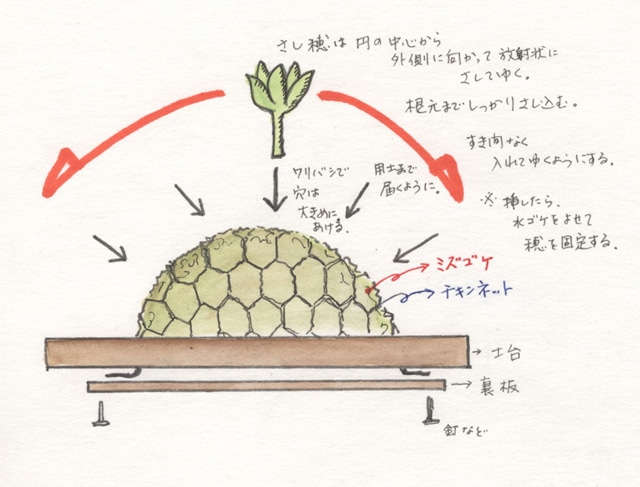 さし穂は円の中心から
外側に向かって放射状に
さしてゆく。
根元までしっかりさし込む。
すき間なく
入れてゆくようにする。
※ 挿したら、
水ゴケをよせて
穂を固定する。
ワリバシで
穴は
大きめに
あける。
用土まで
届くように。
ミズゴケ
チキンネット
土台
裏板
釘など